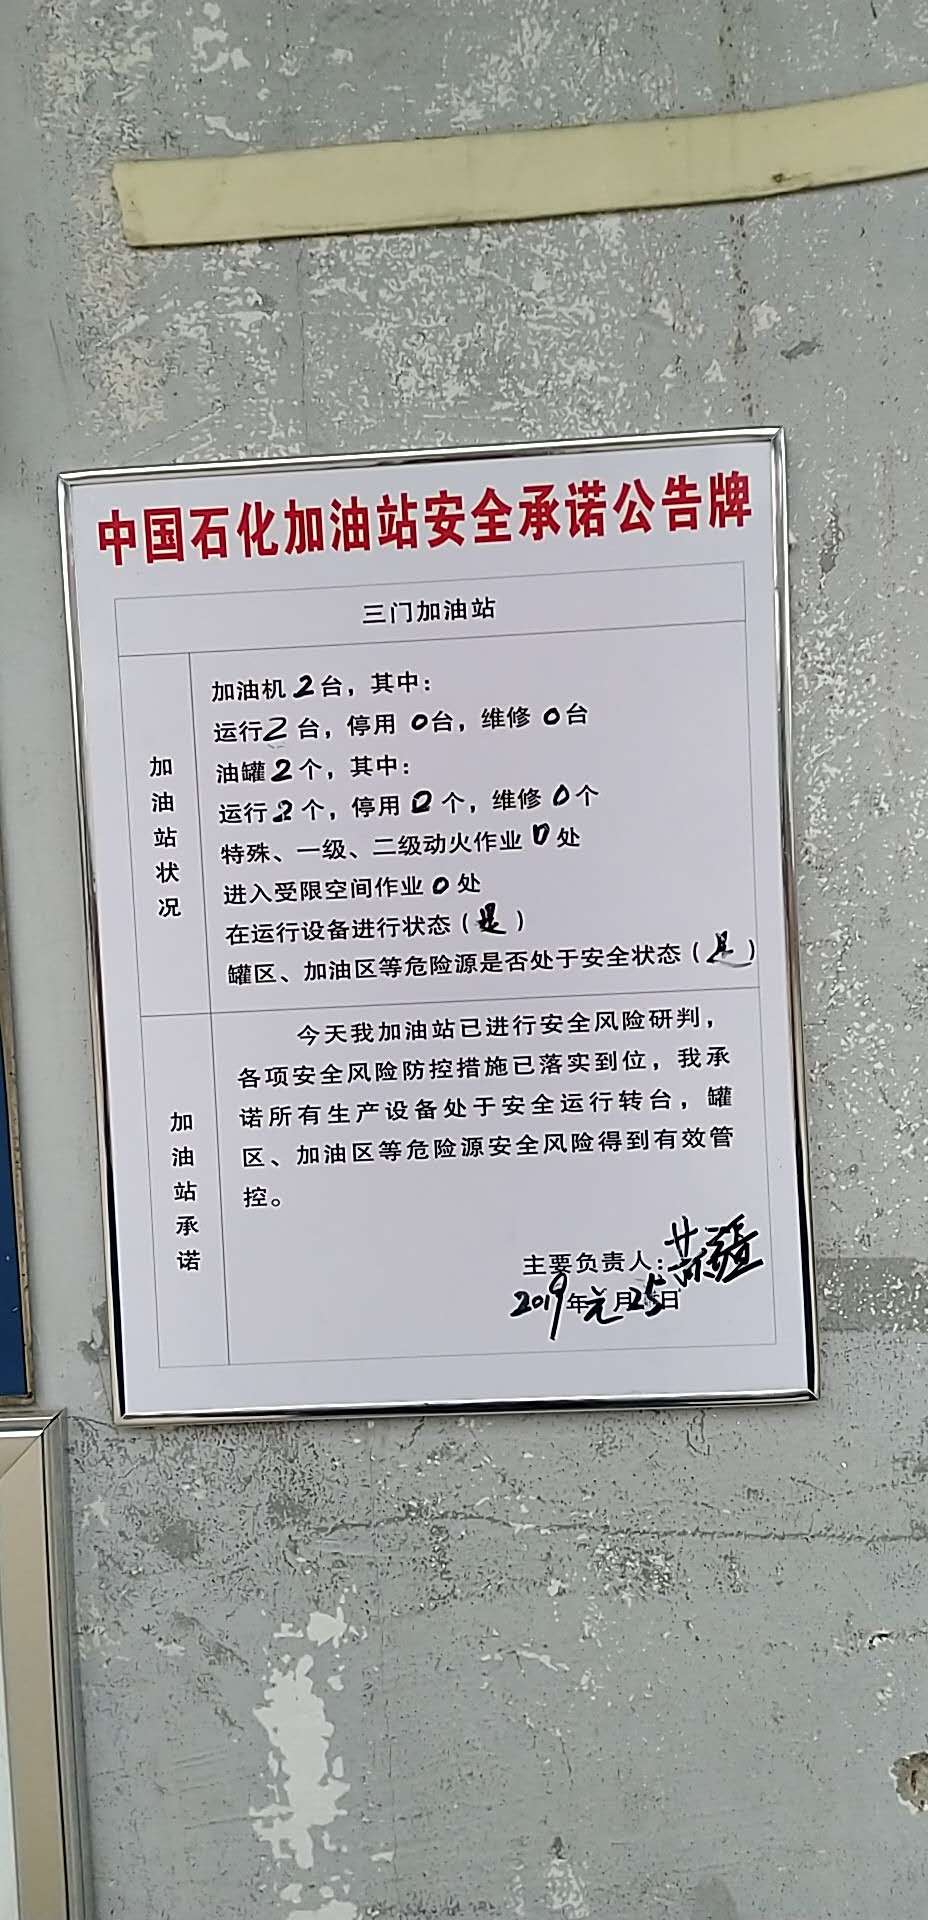 中国石化加油站安全承诺公告牌
三门加油站
加油站状况
加油机2台，其中：
运行2台，停用0台，维修0台
油罐2个，其中：
运行2个，停用0个，维修0个
特殊、一级、二级动火作业0处
进入受限空间作业0处
在运行设备进行状态（是）
罐区、加油区等危险源是否处于安全状态（是）
加油站承诺
今天我加油站已进行安全风险研判，
各项安全风险防控措施已落实到位，我承
诺所有生产设备处于安全运行转台，罐
区、加油区等危险源安全风险得到有效管
控。
主要负责人：
2019年元月25日